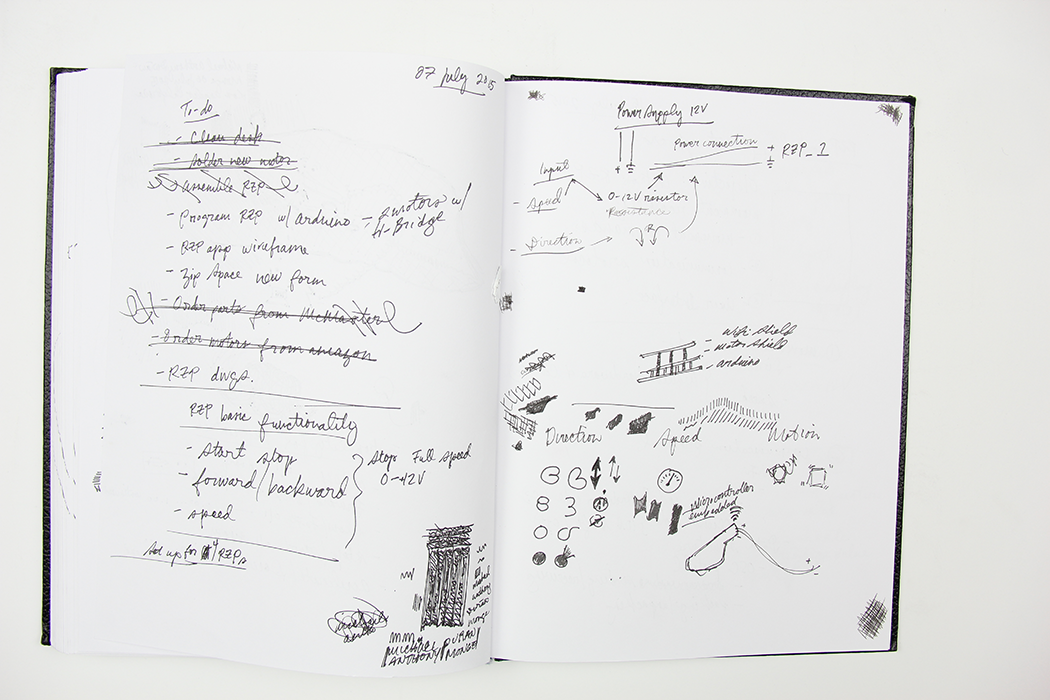 07 July 2015
To-do
- Clean disk
- Solder new motor
- Assemble RZP
- Program RZP w/ arduino - 2 motors w/
H-Bridge
- RZP app wireframe
- Zip Space new form
- Order parts from McMaster
- Order motors from amazon
- RZP dwgs.
RZP basic functionality
- start stop
- forward/backward
- speed
Stop Full speed
0-12V
Set up for 4 RZPs
MICHAEL
ANTHONY
DURAN
MONGE
Power Supply 12V
Power connection
+ RZP_1
Input
- Speed
0-12V resistor
Resistance
- Direction
wifi shield
- motor shield
- arduino
Direction
Speed
Motion
Microcontroller
embedded